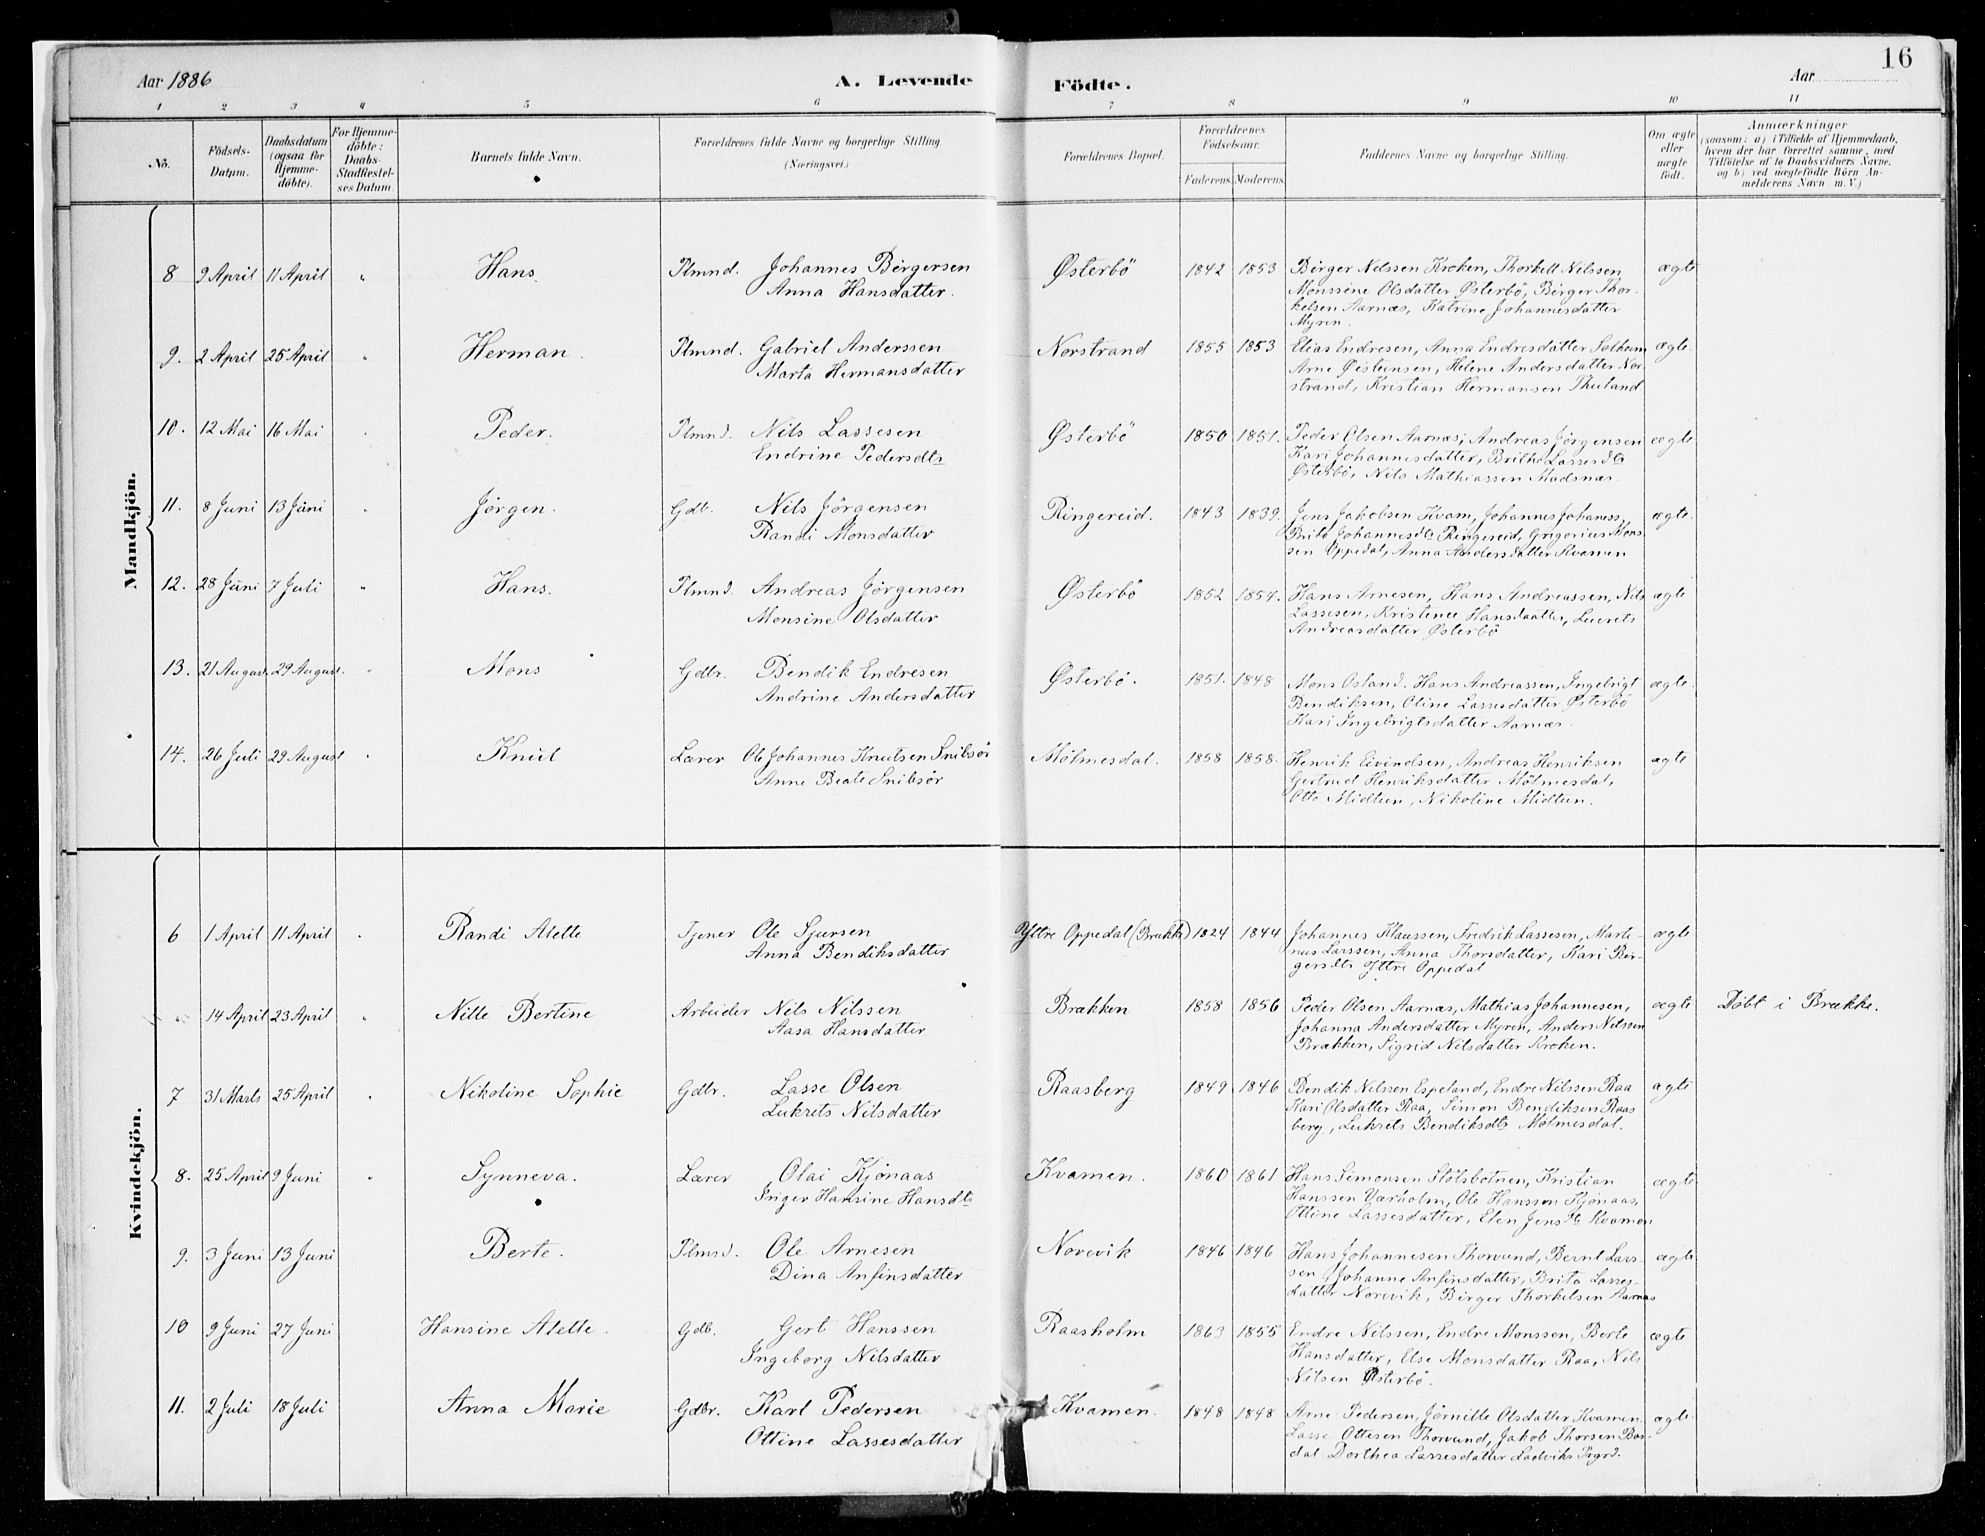 16
Aar 1886
A. Levende
Födte.
Aar
1 2 3 4 5 6 7 8 9 10 11
No.
Födsels-Datum.
Daabsdatum (ogsaa for Hjemme-döbte).
For Hjemme-döbte: Daabs-Stadfæstel-ses Datum
Barnets fulde Navn.
Forældrenes fulde Navne og borgerlige Stilling (Næringsvei.)
Forældrenes Bopæl.
Forældrenes Födselsaar.
Faderens
Moderens
Faddernes Navne og borgerlige Stilling.
Om ægte eller uægte födt.
Anmærkninger
(saasom: a) i Tilfælde af Hjemmedaab,
hvem der har forrettet samme, med
Tilföielse af to Daabsvidners Navne,
og b) ved uægtefödte Börn An-
melderens Navn m. V.)
Mandkjön.
8 9 April 11 April " Hans. Plmnd. Johannes Børgersen Østerbö 1842 1853 Børger Nilssen Kroken, Thorkell Nilssen ægte
Anna Hansdatter. Monssine Olsdatter Østerbö, Børger Thor-
kelsen Aarnæs, Katrine Johannesdatter
Myren.
9. 2 April 25 April " Herman. Plmnd. Gabriel Anderssen Norstrand 1855 1853 Elias Endresen, Anna Endresdatter Solheim ægte.
Marta Hermansdatter Arne Øisteinsen, Helene Andersdatter Nor
strand, Kristian Hermansen Thuland
10. 12 Mai 16 Mai Peder. Plmnd. Nils Lassesen Østerbö 1850 1851. Peder Olsen Aarnæs, Andreas Jørgensen ægte
Endrine Pedersdtr Kari Johannesdatter, Britha Lassesdtr
Østerbö, Nils Mathiassen Madsnæs.
11. 8 Juni 13 Juni Jørgen. Gdb. Nils Jørgensen Ringereid. 1843 1839. Jens Jakobsen Kvam, Johannes Johaness. ægte.
Randi Monsdatter Brita Johannesdtr Ringereid, Grigorius Mons
sen Oppedal, Anna Andersdatter Kvamen
12. 28 Juni 7 Juli " Hans. Plmnd. Andreas Jørgensen Østerbö 1852 1854. Hans Arnesen, Hans Andreassen, Nils ægte
Monsine Olsdatter Lassesen, Kristence Hansdaatter, Lucrets
Andreasdatter Østerbö
13. 21 August 29 August. " Mons Gdbr. Bendik Endresen Østerbö. 1851. 1848 Mons Osland. Hans Andreassen, Ingebrigt ægte.
Andrine Andersdatter Bendiksen, Oline Lassesdatter Østerbö
Kari Ingebrigtsdatter Aarnæs.
14. 26 Juli 29 August " Knut Lærer Ole Johannes Knutsen Snibsör Mölmesdal. 1858 1858. Henrik Eivindsen, Andreas Henriksen ægte
Anne Beate Snibsör Gertrud Henriksdatter Mölmesdal,
Otto Midtun, Nikoline Midtun.
Kvindekjön.
6 1 April 11 April " Randi Alette Tjener Ole Sjursen Yttre Oppedal (Brække) 1824 1844 Johannes Klaussen, Fredrik Lassesen, Marti- ægte
Anna Bendiksdatter nus Larssen, Anna Thorsdatter, Kari Bør-
gersdtr Yttre Oppedal
" 14 April 23 April " Nille Bertine Arbeider Nils Nilssen Brækken 1858 1856 Peder Olsen Aarnæs, Mathias Johannesen, ægte Döbt i Brække.
Aasa Hansdatter Johanna Andersdatter Myren, Anders Nilssen
Brækken, Sigrid Nilsdatter Kroken.
7 31 Marts 25 April " Nikoline Sophie Gdbr. Lasse Olsen Raasberg 1849 1846 Bendik Nilssen Espeland, Endre Nilssen Raa ægte
Lukrets Nilsdatter Kari Olsdatter Raa, Simon Bendiksen Raas
berg, Lukrets Bendiksdtr Mölmesdal.
8. 25 April 9 Juni " Synneva. Lærer Olai Kjönaas Kvamen. 1860 1861 Hans Simonsen Stölsbotnen, Kristian ægte
Inger Hansine Hansdtr Hanssen Værholm, Ole Hansson Kjönaas,
Ottine Lassesdatter, Elen Jensdtr Kvamen
9. 3 Juni 13 Juni Berte. Plmnd. Ole Arnesen Norevik 1846 1846 Hans Johannesen Thorvund, Bernt Lars- ægte
Dina Anfinsdatter sen, Johanne Anfinsdatter, Brita Lasses-
datter Norevik, Børger Thorkelsen Aarnæs
10 9 Juni 27 Juni Hansine Alette. Gdb. Gert Hanssen Raasholm 1863 1855 Endre Nilssen, Endre Monssen, Berte ægte
Ingeborg Nilsdatter Hansdatter, Else Monsdatter Raa, Nils
Nilsen Østerbö.
11. 2 Juli 18 Juli Anna Marie Gdbr. Karl Pedersen Kvamen. 1848 1848 Arne Pedersen, Jørnille Olsdatter Kvamen. ægte.
Ottine Lassesdatter Lasse Ottesen Thorvund, Jakob Thorsen Bor-
dal. Dorthea Lassesdatter Ladviks Prgrd.